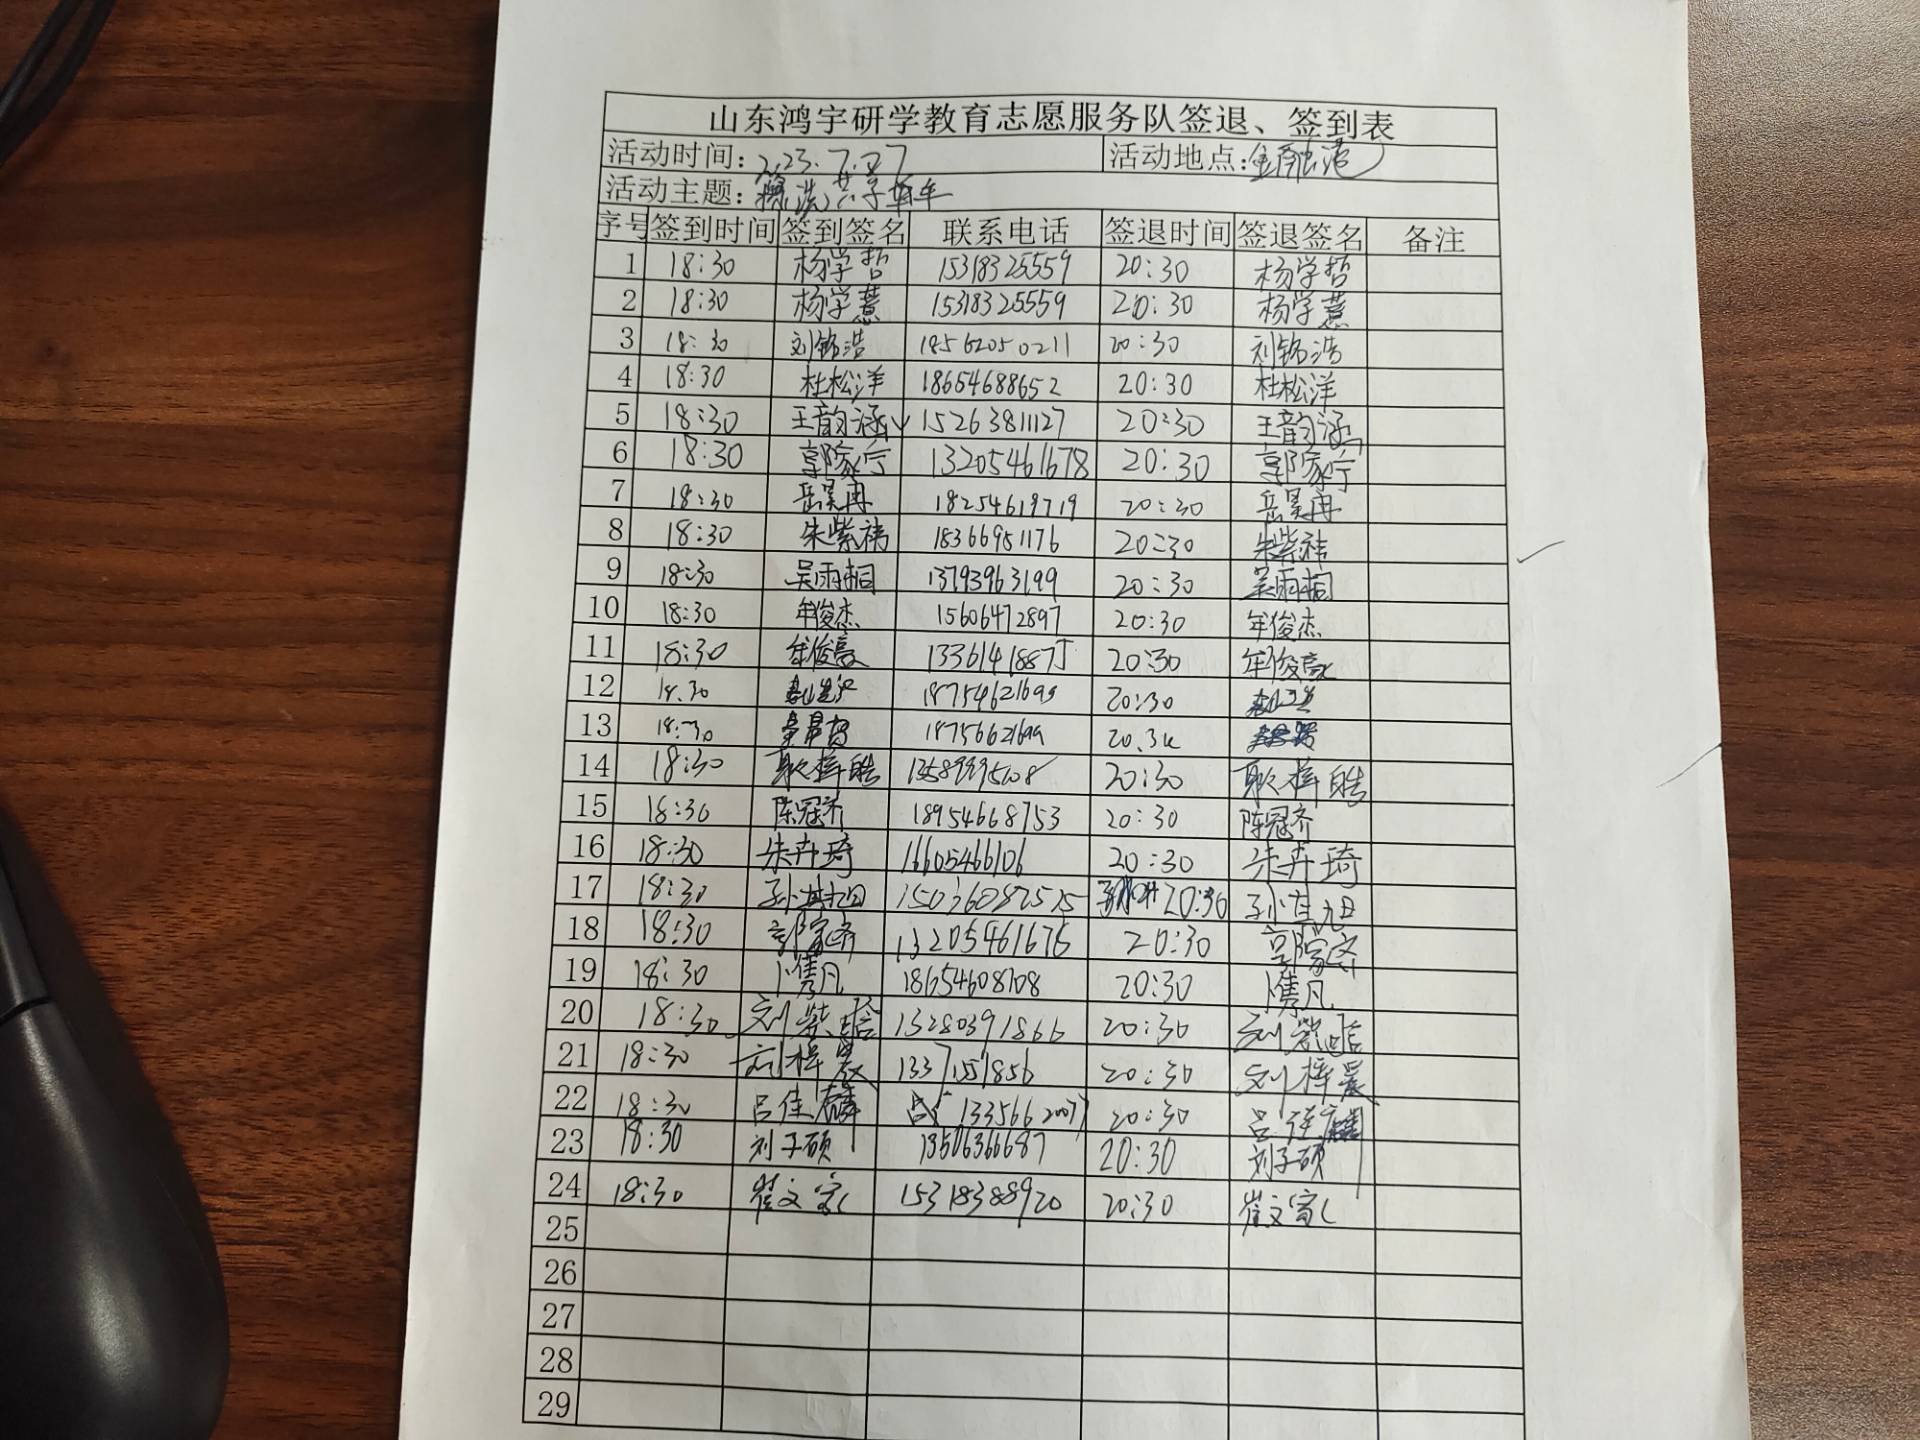 山东鸿宇研学教育志愿服务队签退、签到表
活动时间: 活动地点:金融港
活动主题: 共享单车
序号 签到时间 签到签名 联系电话 签退时间 签退签名 备注
1 18:30 杨学哲 15318325559 20:30 杨学哲
2 18:30 杨学慧 15318325559 20:30 杨学慧
3 18:30 刘铭浩 18562050211 20:30 刘铭浩
4 18:30 杜松洋 18654688652 20:30 杜松洋
5 18:30 王韵涵 15263811127 20:30 王韵涵
6 18:30 郭家宁 13205461678 20:30 郭家宁
7 18:30 岳昊冉 18254619719 20:30 岳昊冉
8 18:30 朱紫祎 18366951176 20:30 朱紫祎
9 18:30 吴雨桐 13793963199 20:30 吴雨桐
10 18:30 牟俊杰 15606472897 20:30 牟俊杰
11 18:30 牟俊豪 20:30 牟俊豪
12 18:30 18754621699 20:30
13 18:30 20:30
14 18:30 耿梓皓 20:30 耿梓皓
15 18:30 陈冠齐 18954668753 20:30 陈冠齐
16 18:30 朱卉琦 16605466106 20:30 朱卉琦
17 18:30 20:30
18 18:30 郭家齐 13205461675 20:30 郭家齐
19 18:30 卜隽凡 18654608708 20:30 卜隽凡
20 18:30 刘紫晗 13280391866 20:30 刘紫晗
21 18:30 刘梓晨 13371551856 20:30 刘梓晨
22 18:30 吕佳麟 13356620077 20:30 吕佳麟
23 18:30 刘子硕 13506366687 20:30 刘子硕
24 18:30 崔文 15318388920 20:30 崔文
25
26
27
28
29